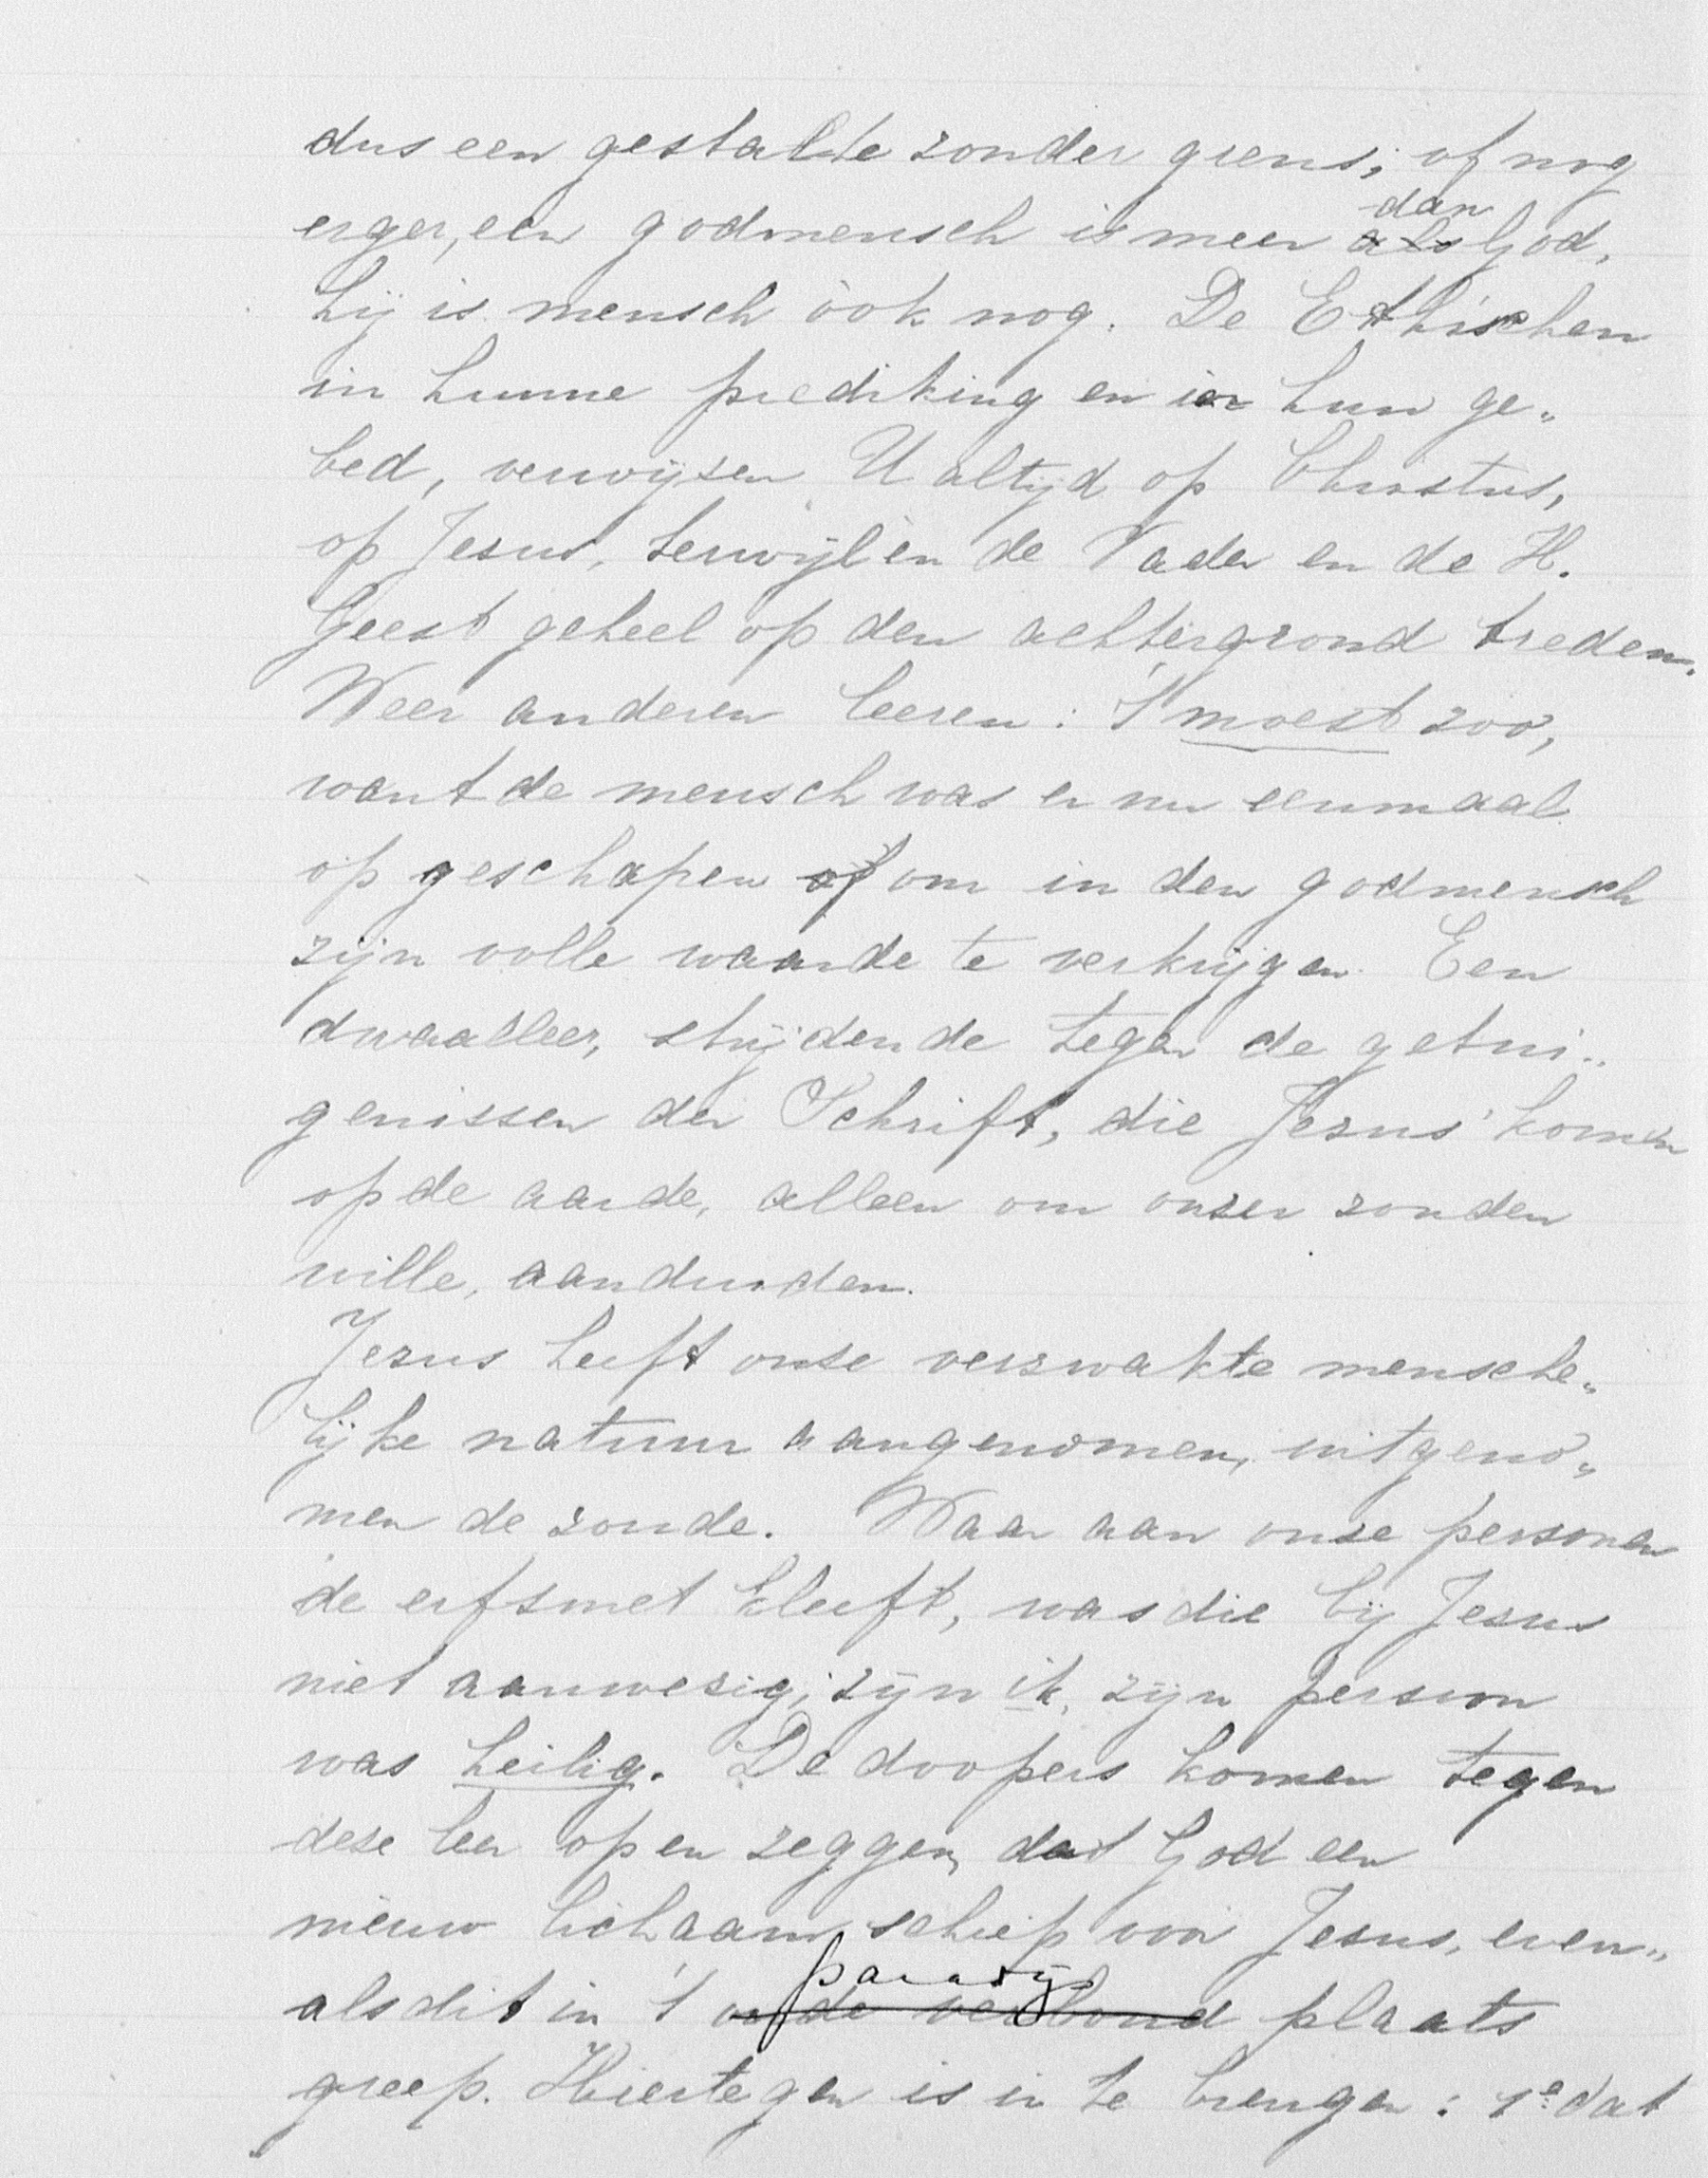 dus een gestalte zonder grens; of nog
erger, een godmensch is meer dan als God,
hij is mensch òok nog. De Ethischen
in hunne prediking en in hun ge„
bed, verwijzen U altijd op Christus,
op Jesus, terwijl èn de Vader en de H.
Geest geheel op den achtergrond treden.
Weer anderen leeren: 't moest zoo,
want de mensch was er nu eenmaal
op geschapen of om in den godmensch
zijn volle waarde te verkrijgen. Een
dwaalleer, strijdende tegen de getui„
genissen der Schrift, die Jezus' komen
op de aarde, alleen om onzer zonden
wille, aanduiden.
Jezus heeft onze verzwakte mensche„
lijke natuur aangenomen, uitgeno„
men de zonde. Waar aan onze personen
de erfsmet kleeft, was die bij Jezus
niet aanwezig; zijn ik, zijn persoon
was heilig. De doopers komen tegen
deze leer op en zeggen, dat God een
nieuw lichaam schiep voor Jezus, even„
als dit in 't paradijs oude verbond plaats
greep. Hiertegen is in te brengen: 1e dat